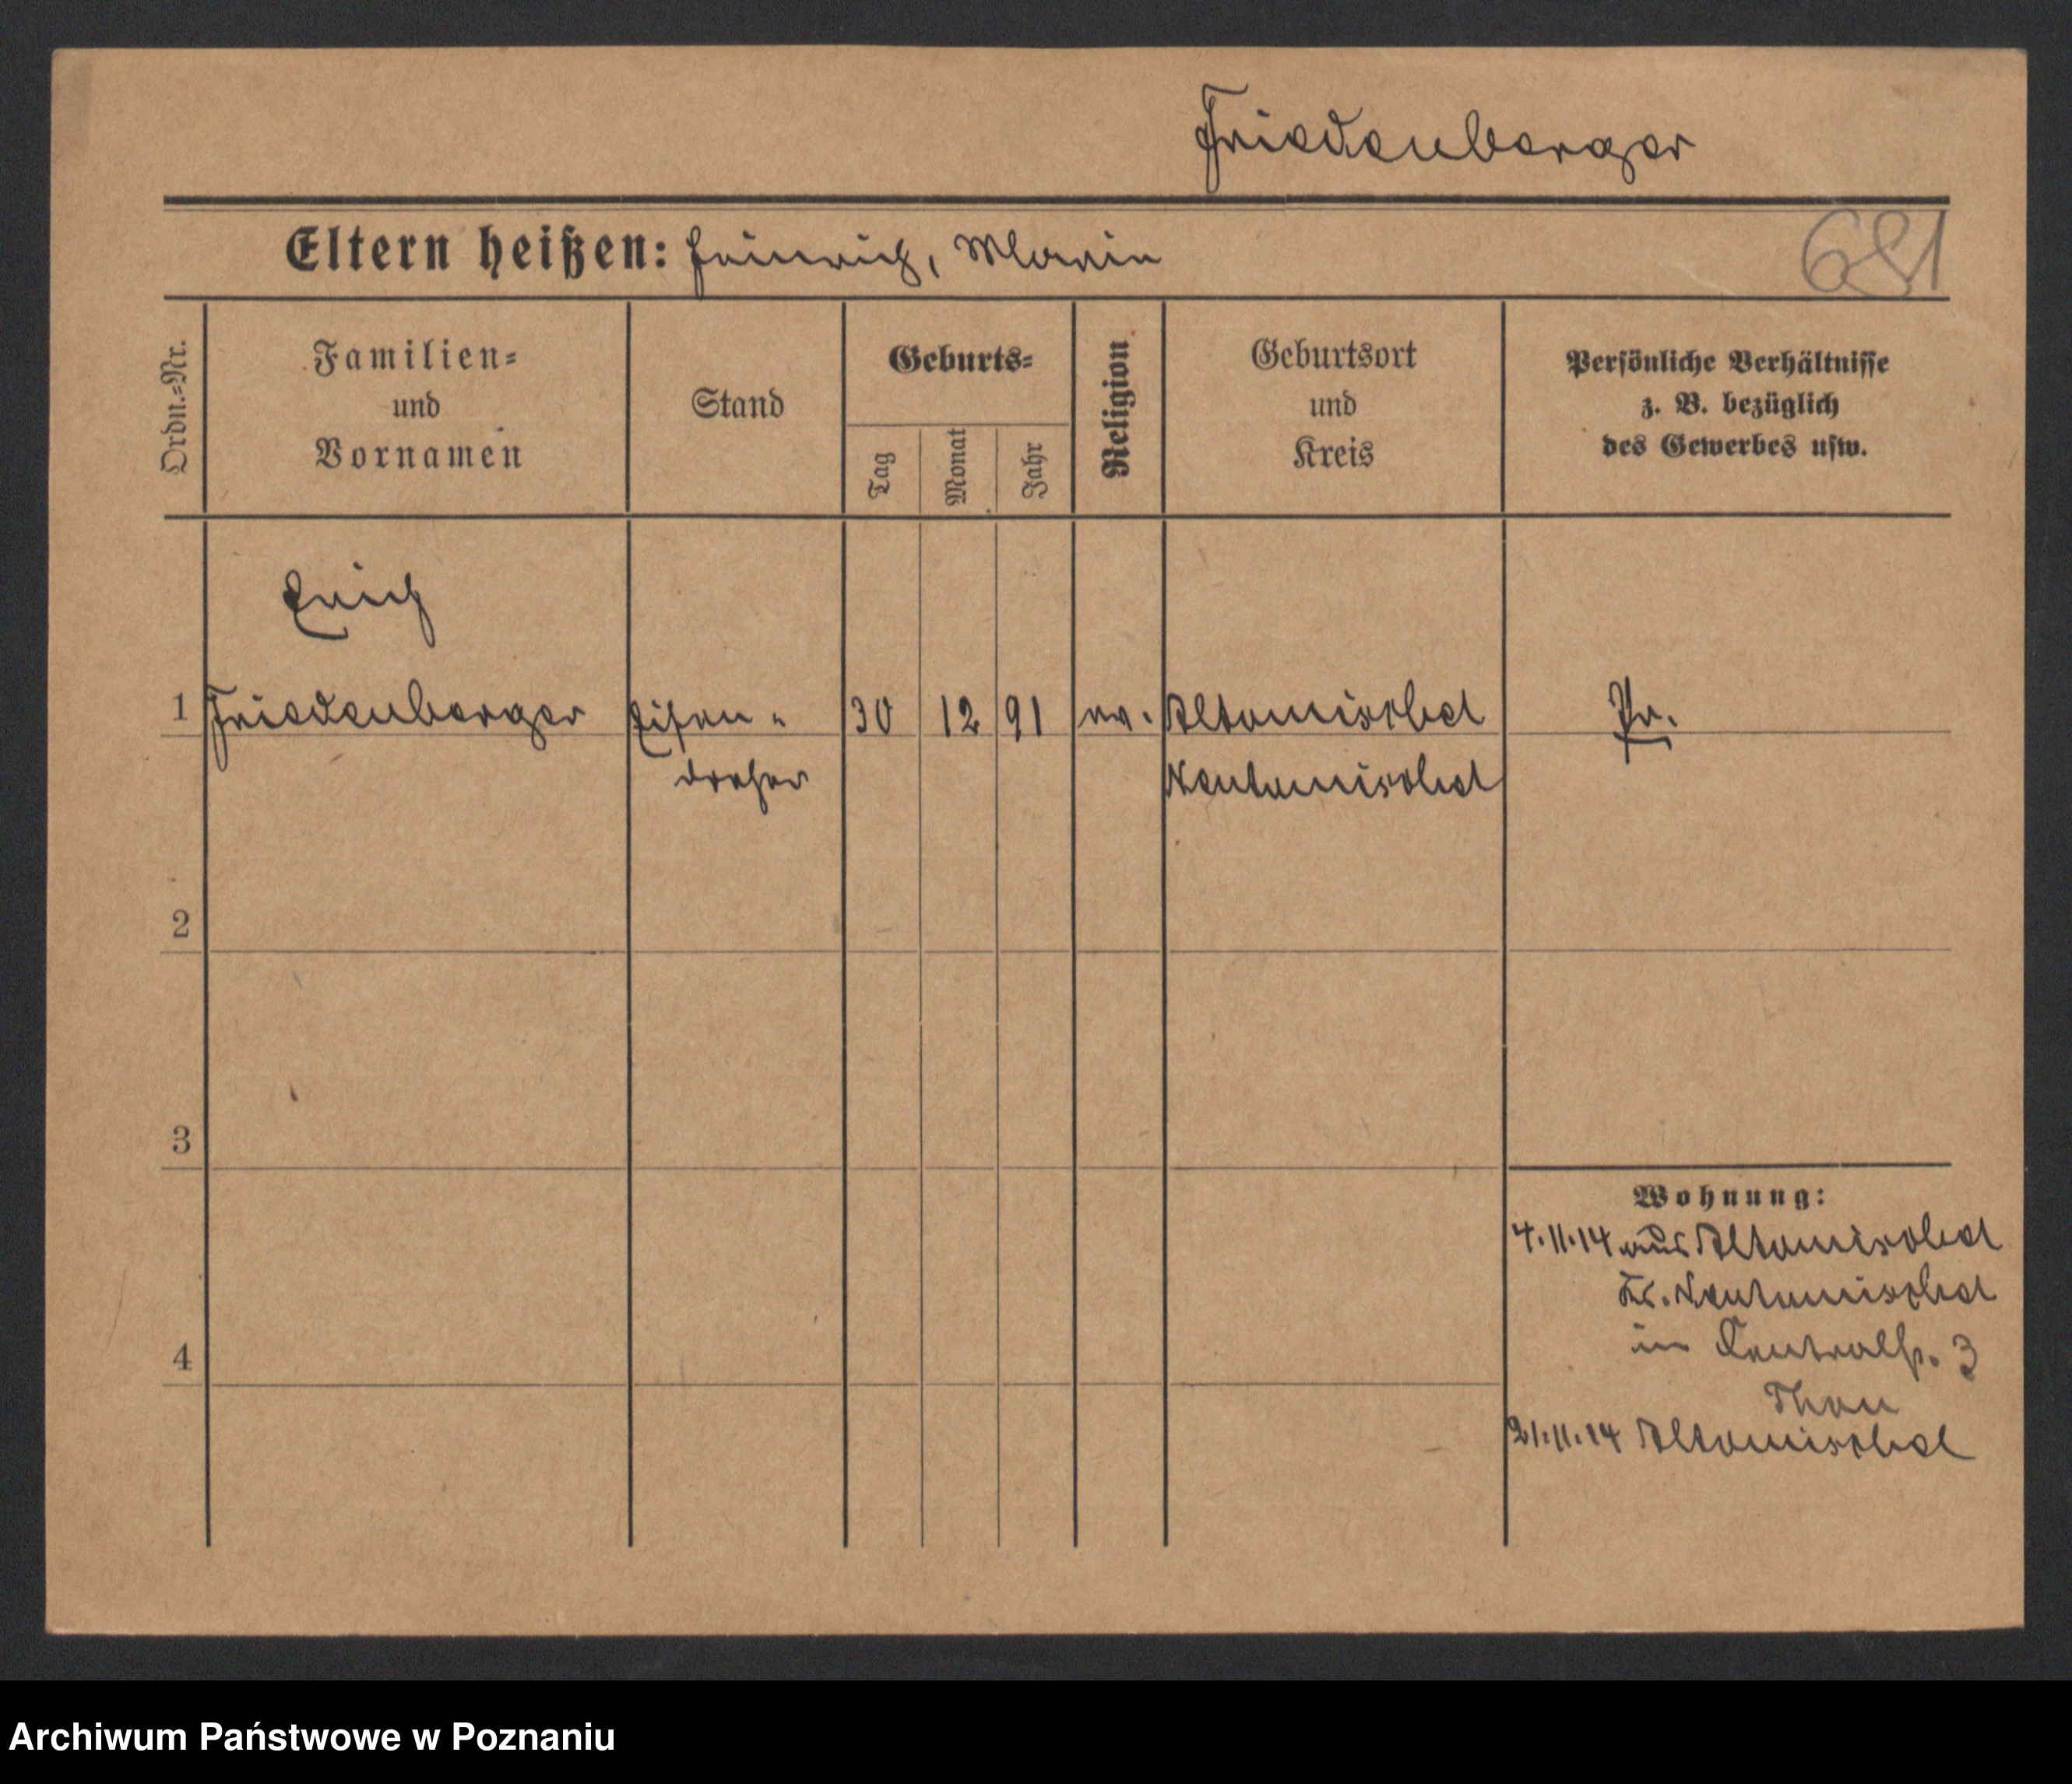 Friedenberger
Eltern heißen: Heinrich, Maria
681
Ordn.=Nr.
Familien=
und
Vornamen
Stand
Geburts=
Tag
Monat
Jahr
Religion
Geburtsort
und
Kreis
Persönliche Verhältnisse
z. B. bezüglich
des Gewerbes usw.
Erich
1 Friedenberger Eisen= 30 12 91 ev. Altomischel Pr.
dreher Neutomischel
2
3
4
Wohnung:
4.11.14 aus Altomischel
Kr. Neutomischel
in Centralh. 3
21.11.14 Altomischel